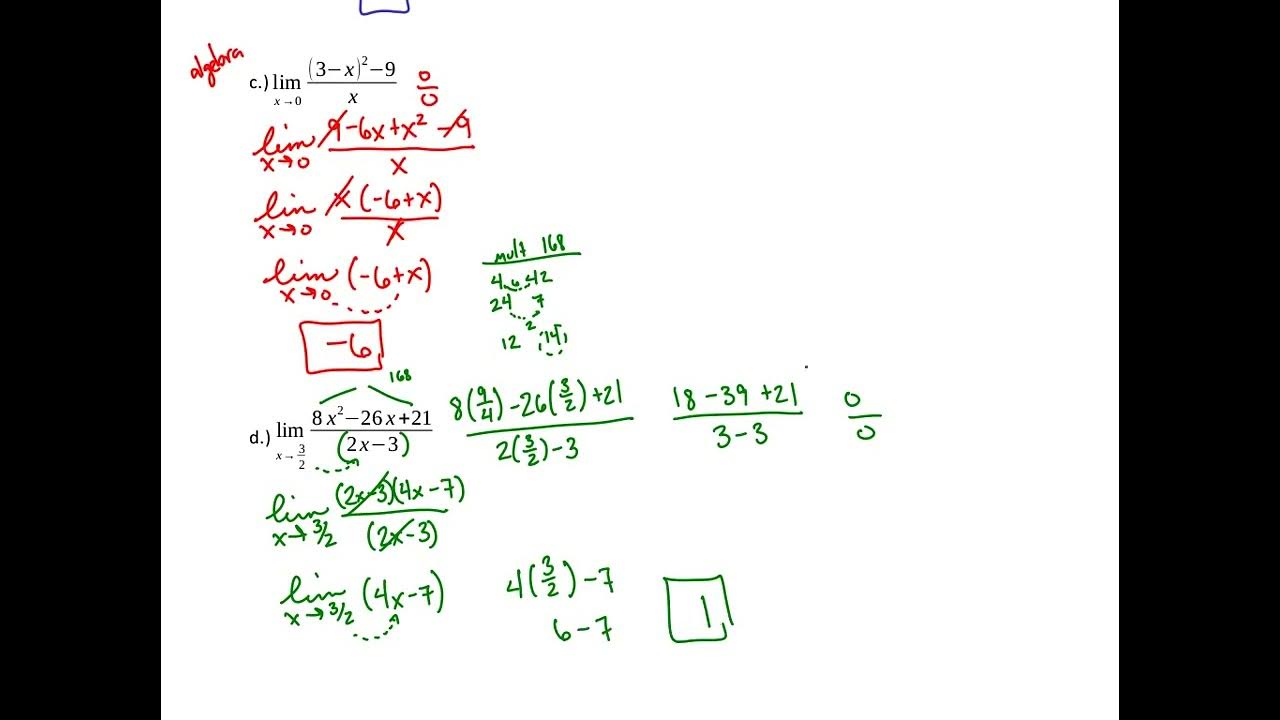 algebra
c.) lim x→0 ((3−x)²−9)/x 0/0
lim x→0 (9-6x+x²-9)/x
lim x→0 x(-6+x)/x
lim x→0 (-6+x)
-6
mult 168
4 6 42
24 7
2
12 14
168
d.) lim x→3/2 (8x²−26x+21)/(2x−3) (8(9/4)-26(3/2)+21)/(2(3/2)-3) (18-39+21)/(3-3) 0/0
lim x→3/2 (2x-3)(4x-7)/(2x-3)
lim x→3/2 (4x-7) 4(3/2)-7
6-7 1